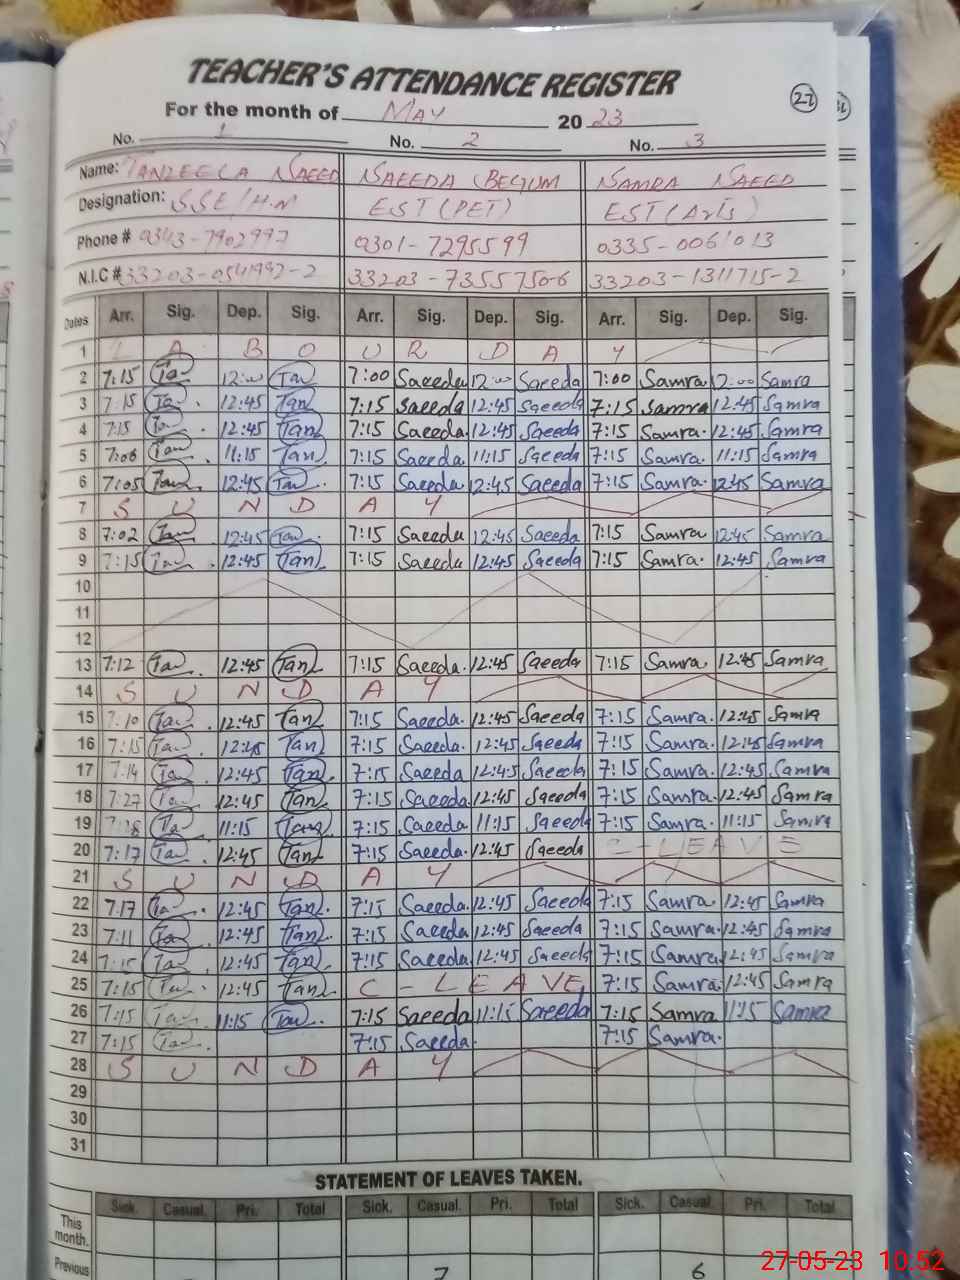 TEACHER'S ATTENDANCE REGISTER
22
For the month of May 2023
No. 1 No. 2 No. 3
Name: TANZEELA NAEED SAEEDA BEGUM SAMRA SAEED
Designation: SSE/H.M EST (PET) EST (Arts)
Phone # 0343-7902997 0301-7295599 0335-0061013
N.I.C # 33203-0541992-2 33203-7355750-6 33203-1311715-2
Dates Arr. Sig. Dep. Sig. Arr. Sig. Dep. Sig. Arr. Sig. Dep. Sig.
1 L A B O U R D A Y
2 7:15 Tan 12:00 Tan 7:00 Saeeda 12:00 Saeeda 7:00 Samra 12:00 Samra
3 7:15 Tan 12:45 Tan 7:15 Saeeda 12:45 Saeeda 7:15 Samra 12:45 Samra
4 7:15 Tan 12:45 Tan 7:15 Saeeda 12:45 Saeeda 7:15 Samra 12:45 Samra
5 7:06 Tan 11:15 Tan 7:15 Saeeda 11:15 Saeeda 7:15 Samra 11:15 Samra
6 7:05 Tan 12:45 Tan 7:15 Saeeda 12:45 Saeeda 7:15 Samra 12:45 Samra
7 S U N D A Y
8 7:02 Tan 12:45 Tan 7:15 Saeeda 12:45 Saeeda 7:15 Samra 12:45 Samra
9 7:15 Tan 12:45 Tan 7:15 Saeeda 12:45 Saeeda 7:15 Samra 12:45 Samra
10
11
12
13 7:12 Tan 12:45 Tan 7:15 Saeeda 12:45 Saeeda 7:15 Samra 12:45 Samra
14 S U N D A Y
15 7:10 Tan 12:45 Tan 7:15 Saeeda 12:45 Saeeda 7:15 Samra 12:45 Samra
16 7:15 Tan 12:45 Tan 7:15 Saeeda 12:45 Saeeda 7:15 Samra 12:45 Samra
17 7:14 Tan 12:45 Tan 7:15 Saeeda 12:45 Saeeda 7:15 Samra 12:45 Samra
18 7:27 Tan 12:45 Tan 7:15 Saeeda 12:45 Saeeda 7:15 Samra 12:45 Samra
19 Tan 11:15 Tan 7:15 Saeeda 11:15 Saeeda 7:15 Samra 11:15 Samra
20 7:17 Tan 12:45 Tan 7:15 Saeeda 12:45 Saeeda C-LEAVE
21 S U N D A Y
22 7:17 Tan 12:45 Tan 7:15 Saeeda 12:45 Saeeda 7:15 Samra 12:45 Samra
23 7:11 Tan 12:45 Tan 7:15 Saeeda 12:45 Saeeda 7:15 Samra 12:45 Samra
24 7:15 Tan 12:45 Tan 7:15 Saeeda 12:45 Saeeda 7:15 Samra 12:45 Samra
25 7:15 Tan 12:45 Tan C-LEAVE 7:15 Samra 12:45 Samra
26 7:15 Tan 11:15 Tan 7:15 Saeeda 11:15 Saeeda 7:15 Samra 11:15 Samra
27 7:15 Tan 7:15 Saeeda 7:15 Samra
28 S U N D A Y
29
30
31
STATEMENT OF LEAVES TAKEN.
Sick. Casual. Pri. Total Sick. Casual. Pri. Total Sick. Casual. Pri. Total
This month.
Previous 7 6
27-05-23 10:52